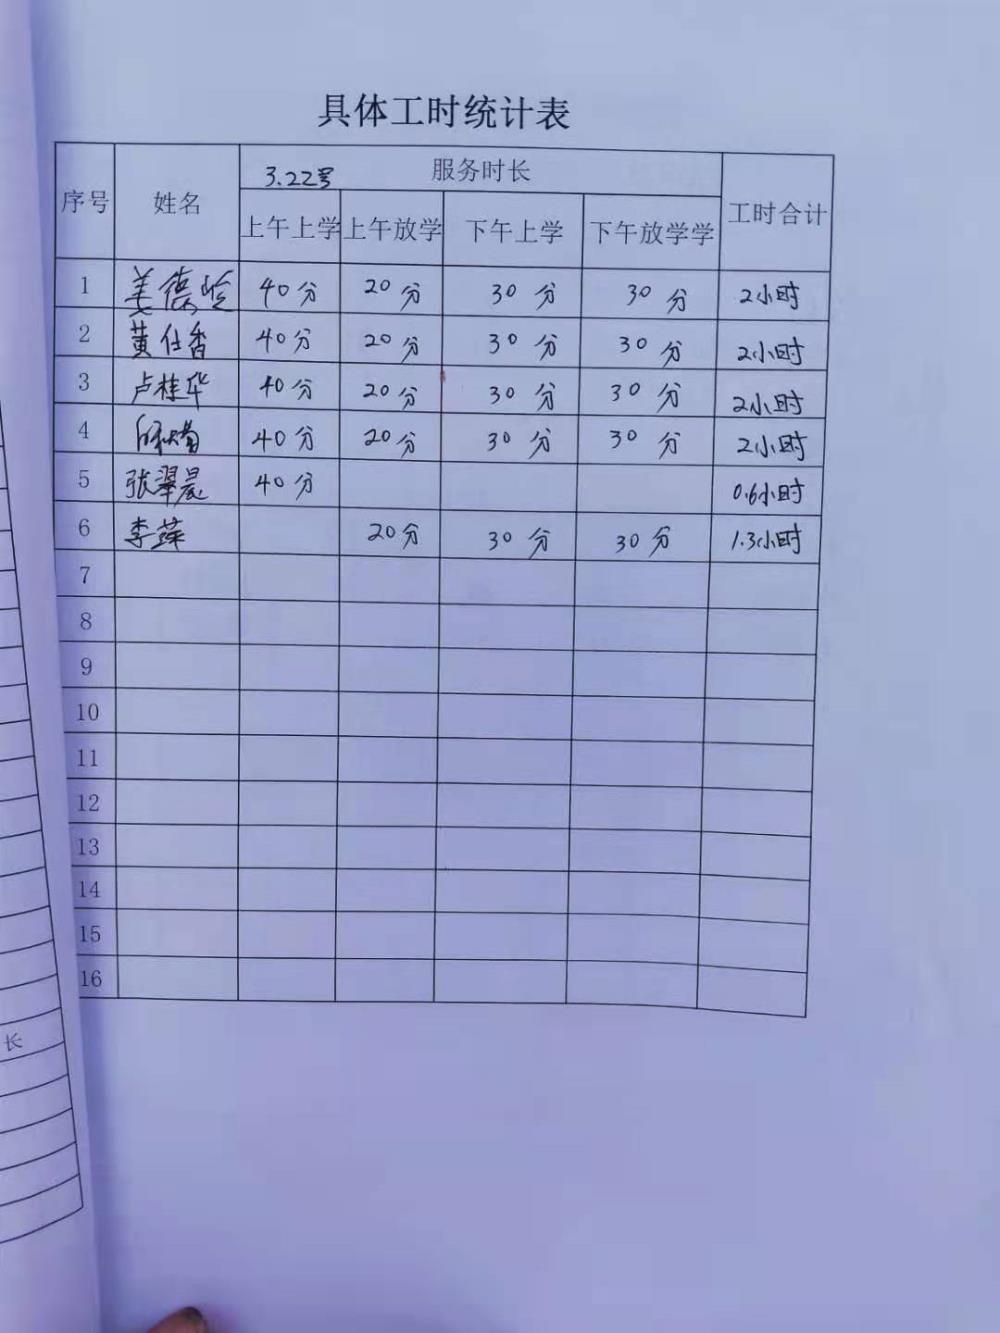 具体工时统计表
序号 姓名 3.22号 服务时长 工时合计
上午上学 上午放学 下午上学 下午放学学
1 姜德 40分 20分 30分 30分 2小时
2 黄仕香 40分 20分 30分 30分 2小时
3 卢桂华 40分 20分 30分 30分 2小时
4 40分 20分 30分 30分 2小时
5 张翠晨 40分 0.6小时
6 李萍 20分 30分 30分 1.3小时
7
8
9
10
11
12
13
14
15
16
长